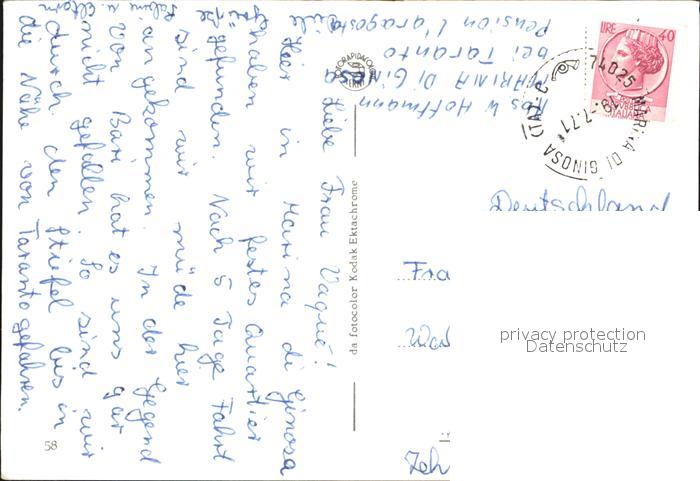 Liebe Frau Vaqué!
Hier in Marina di Ginosa
haben wir festes Quartier
gefunden. Nach 5 Tage Fahrt
sind wir müde hier
angekommen. In der Gegend
von Bari hat es uns gar
nicht gefallen. So sind wir
durch den Stiefel bis in
die Nähe von Taranto gefahren.
W Hoffmann
MARINA DI Ginosa
bei Taranto
Pension L'aragosta
da fotocolor Kodak Ektachrome
58
LIRE 40
74025 MARINA DI GINOSA (TA)
7.71
Deutschland
Fra
privacy protection
Datenschutz